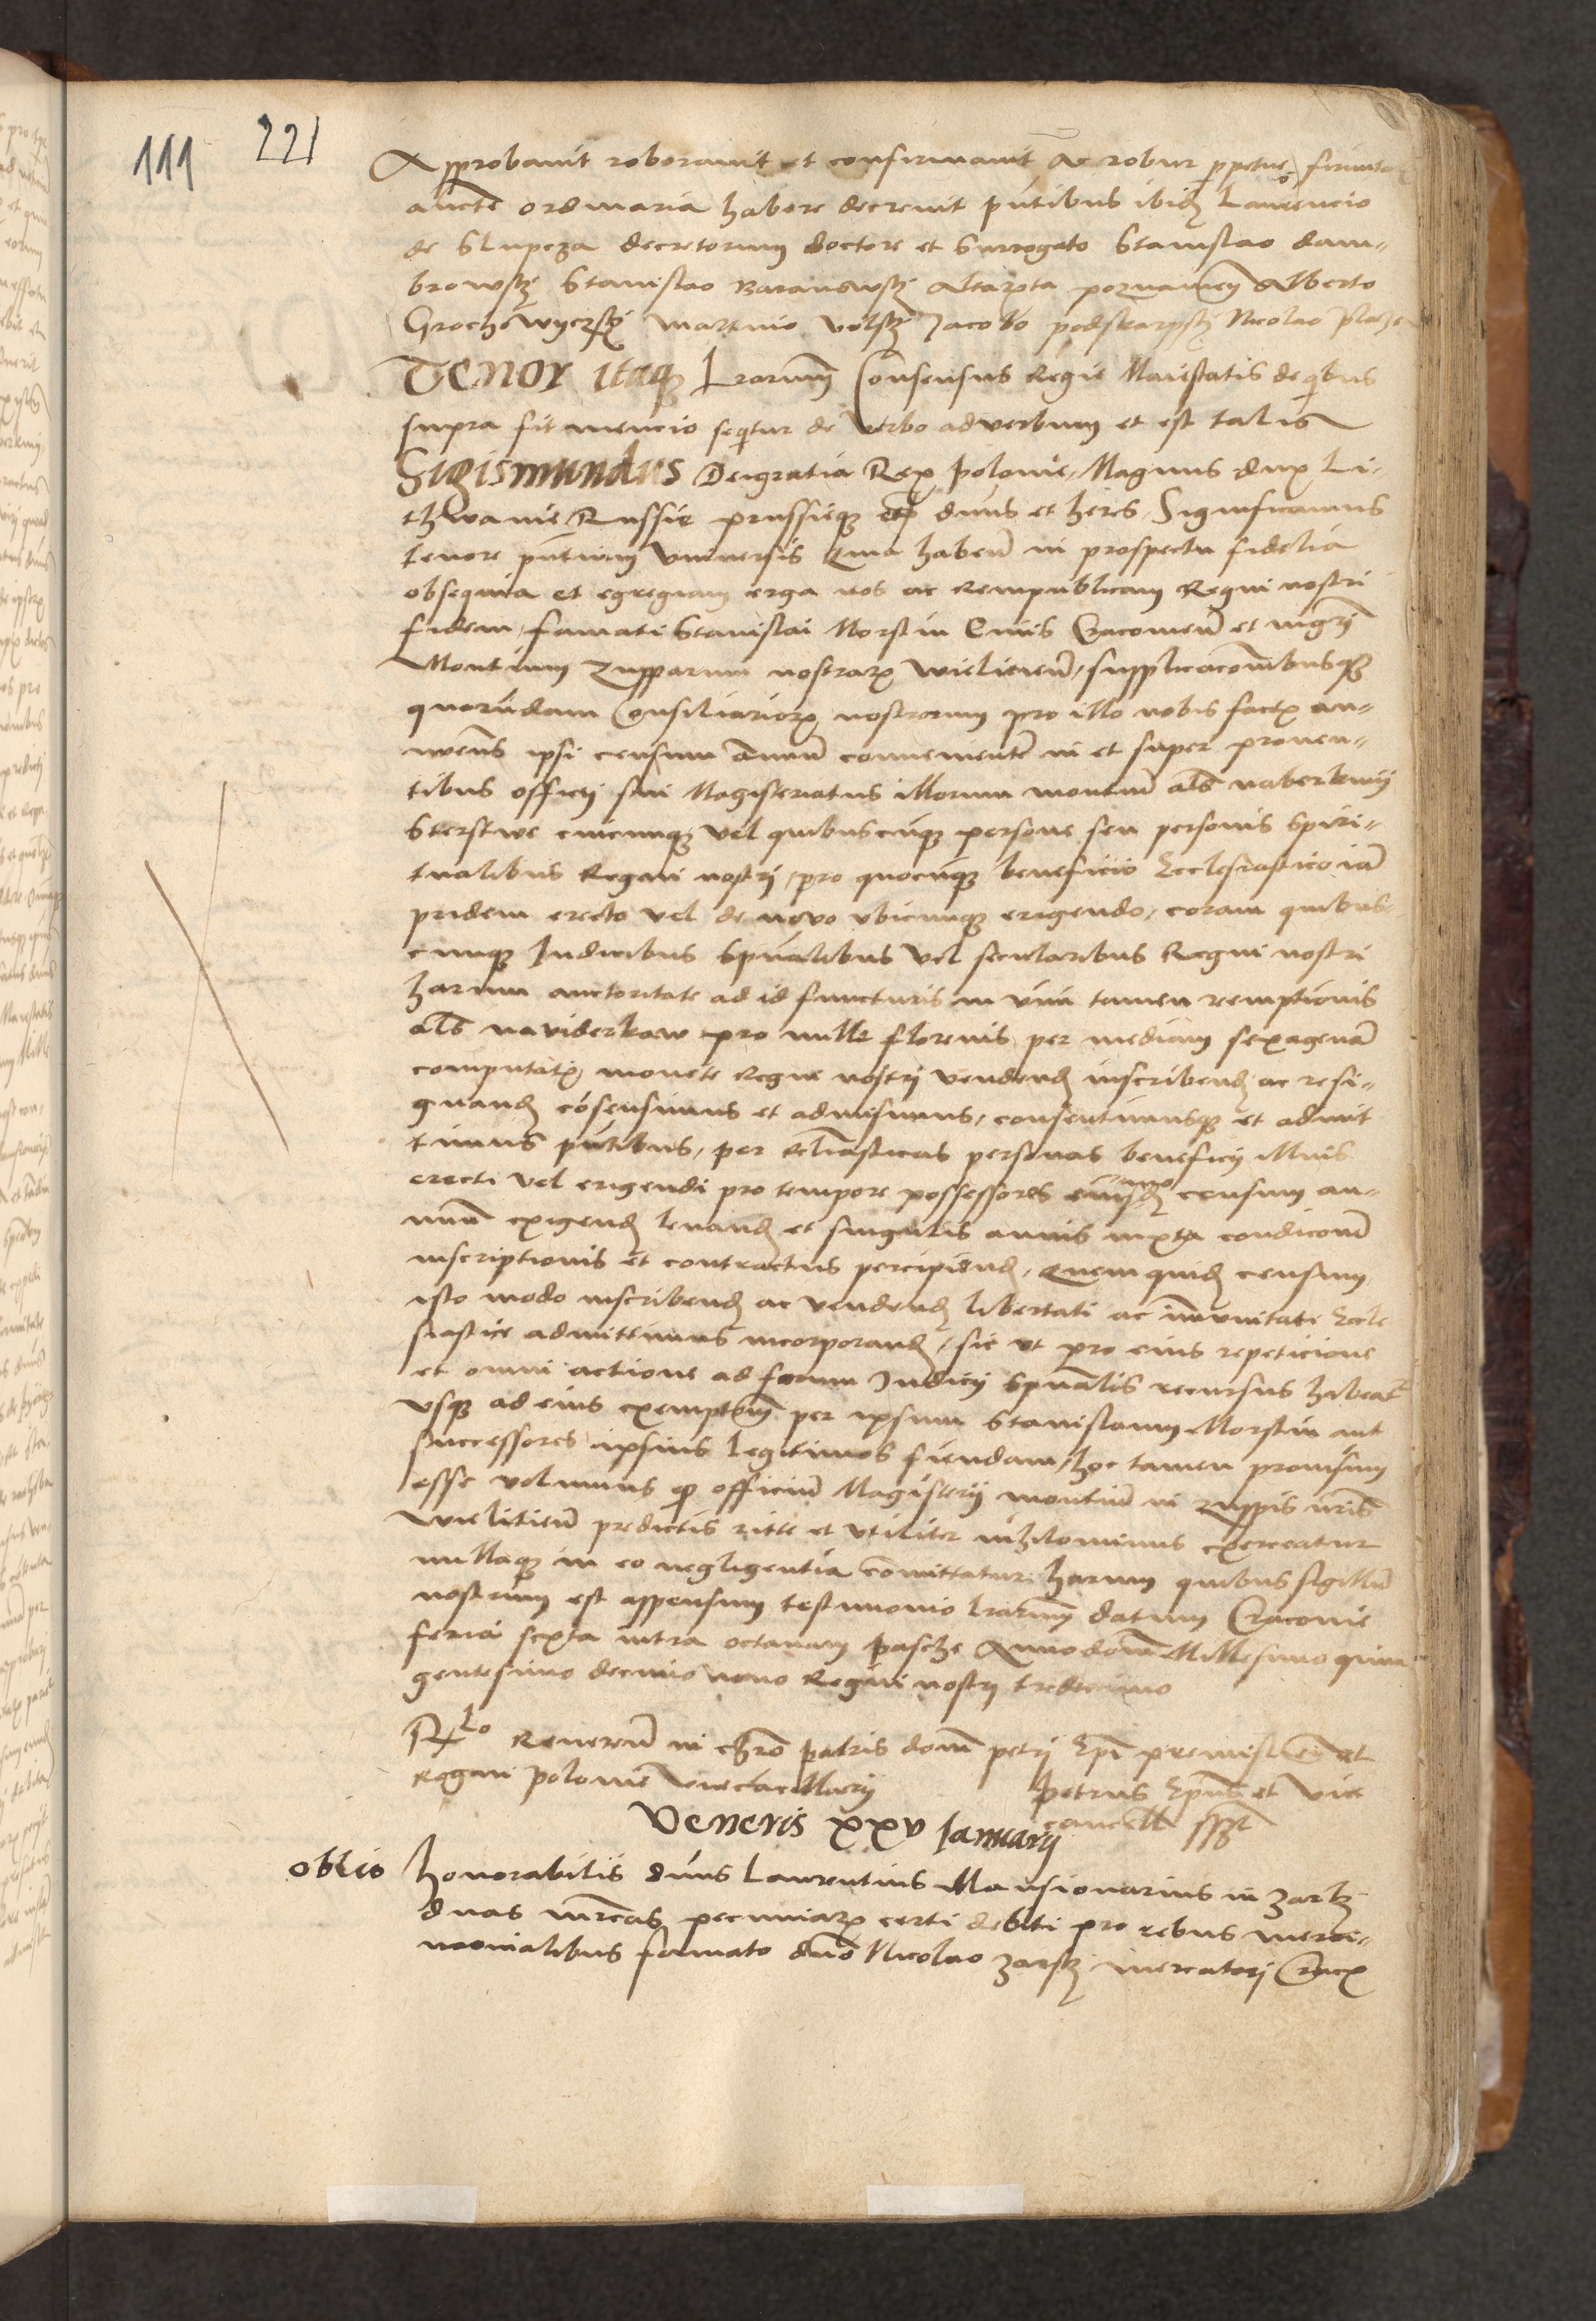 111 221
Approbavit roboravit et confirmavit Ac robur perpetue
aucte ordinaria habere decrevit pntibus ibidem Laurencio
de Slupcza decretorum doctore et Surrogato Stanislao dam-
browskj Stanislao Baranowskj Altarista poznanien Alberto
Martino Jacobo Nicolao
Tenor itaque Lrarum Consensus Regie Maiestatis de quibus
supra fit mencio sequitur de Verbo ad verbum et est talis
Sigismundus Dei gratia Rex Polonie, Magnus dux Li-
thwanie Russie prussieque etc dnus et heres, Significamus
tenore pntium Universis Quia haben in prospectu fidelia
obsequia et egregiam erga nos ac Rempublicam Regni nostri
fidem, famati Stanislai Morstin Civis Cracovien et mgri
Montium Zupparum nostrarum Wielicien, supplicacionibusque
quorundam Consiliariorum nostrorum pro illo nobis factis an-
nuens ipsi censum annuum convenientem in et super proven-
tibus officij sui Magistratus illorum montium als naberkmij
cuicunque vel quibuscunque persone seu personis spiri-
tualibus Regni nostrj, pro quocunque beneficio Ecclesiastico iam
pridem erecto vel de novo ubicunque erigendo, coram quibus-
cunque Iudicibus spualibus vel secularibus Regni nostri
harum auctoritate ad id functuris in vim tamen remptionis
als na viderkaw pro mille florenis per mediam sexagenam
computatis monete Regni nostrj vendendum inscribendum ac resi-
gnandum cosensimus et admisimus, consentimusque et admit
timus pntibus, per eclesiasticas personas beneficij illius
erecti vel erigendi pro tempore possessores censum an-
nuum exigendum levandum et singulis annis iuxta condicionem
inscriptionis et contractus percipiendum, Quem quidem censum
isto modo inscribendum ac vendendum libertati ac immunitati Eccle
siastice admitimus incorporandum, sic ut pro eius repeticione
et omni actione ad forum Iudicij spualis recursus habeatur
usque ad eius exemptionem per ipsum Stanislaum Morstin aut
successores ipsius legitimos fiendam, hoc tamen provisum
esse volumus quod officium Magisterij montium in zuppis nris
Wielicien predictis rite et utiliter nihilominus exerceatur
nullaque in eo negligentia comittatur. harum quibus sigillum
nostrum est appensum testimonio lrarum datum Cracovie
feria sexta intra octavam pasche Anno domini Millesimo quin
gentesimo decimo nono Regni nostrj tredecimo
Rlo Reveren in christo patris domini petrj Epi premislien et
Regni polonie vicecancellarij Petrus Epus et Vice
cancell sspt
Veneris xxv Ianuarij
oblio honorabilis dnus Laurentius Mansionarius in
duas mrcas pecuniarum certi debiti pro rebus merci-
monialibus famato dno Nicolao zarskj mercatorj Crac